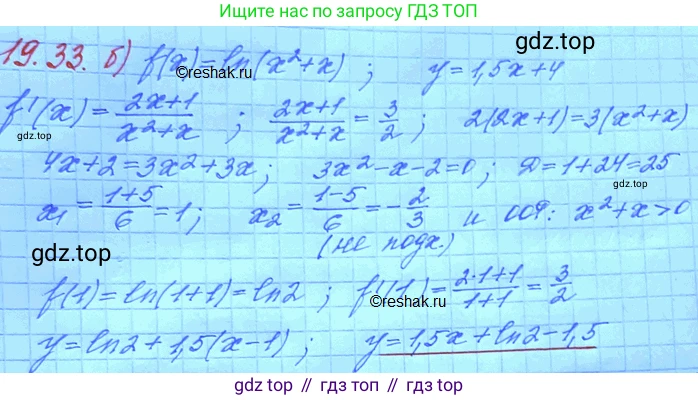 Ищите нас по запросу ГДЗ ТОП
19.33. б) f(x)=ln(x²+x) ; y=1,5x+4
©reshak.ru
f'(x)=(2x+1)/(x²+x) ; (2x+1)/(x²+x)=3/2 ; 2(2x+1)=3(x²+x)
gdz.top
4x+2=3x²+3x; 3x²-x-2=0; D=1+24=25
gdz.top
x₁=(1+5)/6=1; x₂=(1-5)/6=-2/3 и ООФ: x²+x>0
gdz.top
(не подх.)
f(1)=ln(1+1)=ln2 ; f'(1)=(2·1+1)/(1+1)=3/2
©reshak.ru
y=ln2+1,5(x-1) ; y=1,5x+ln2-1,5
gdz.top
gdz top // гдз топ // gdz.top